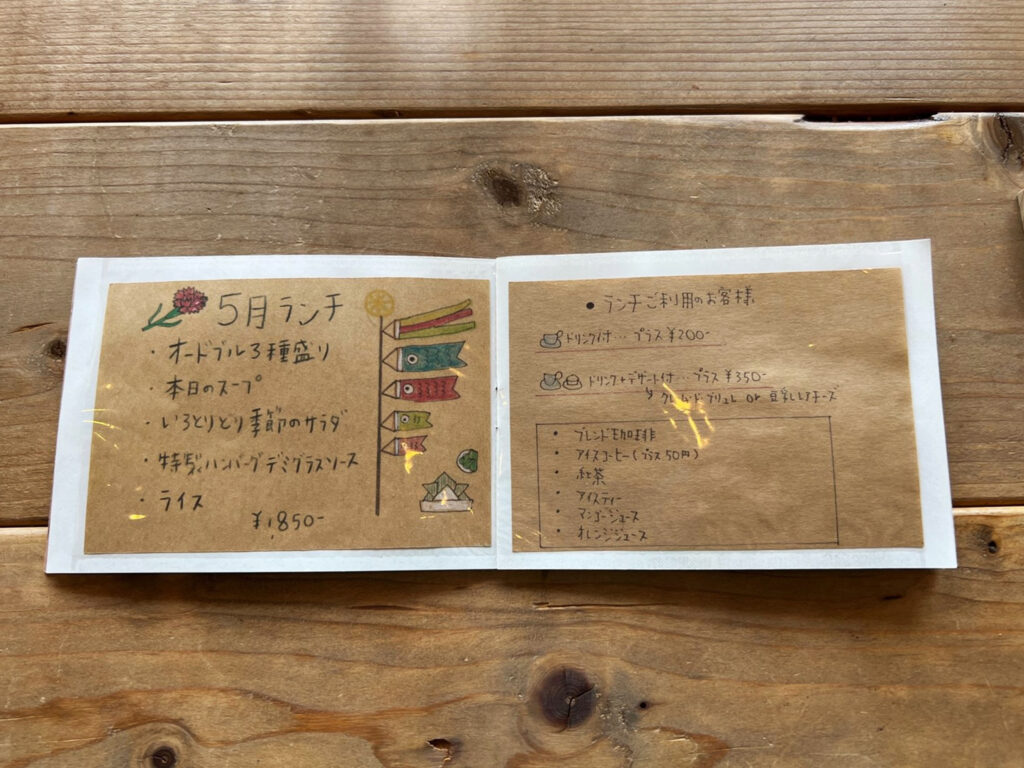 5月ランチ
・オードブル3種盛り
・本日のスープ
・いろとりどり季節のサラダ
・特製ハンバーグデミグラスソース
・ライス
¥1,850-
●ランチご利用のお客様
ドリンク付…プラス¥200-
ドリンク+デザート付…プラス¥350-
クレームブリュレ or 豆乳レアチーズ
・ブレンド珈琲
・アイスコーヒー(プラス50円)
・紅茶
・アイスティー
・マンゴージュース
・オレンジジュース